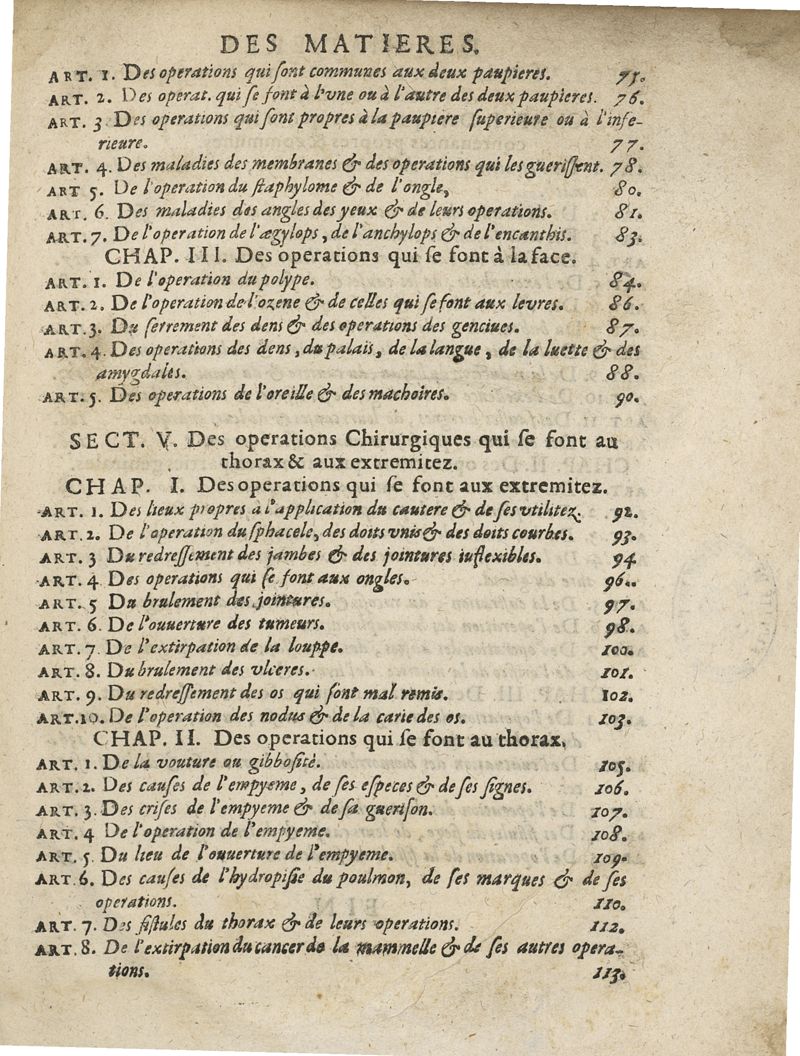 DES MATIERES.
ART. 1. Des operations qui ſont communes aux deux paupieres. 75.
ART. 2. Des operat. qui ſe font à l'vne ou à l'autre des deux paupieres. 76.
ART. 3 Des operations qui ſont propres à la paupiere ſuperieure ou à l'infe-
rieure. 77.
ART. 4. Des maladies des membranes & des operations qui les gueriſſent. 78.
ART 5. De l'operation du ſtaphylome & de l'ongle, 80.
ART. 6. Des maladies des angles des yeux & de leurs operations. 81.
ART. 7. De l'operation de l'ægylops, de l'anchylops & de l'encanthis. 83.
CHAP. III. Des operations qui ſe font à la face.
ART. 1. De l'operation du polype. 84.
ART. 2. De l'operation de l'ozene & de celles qui ſe font aux levres. 86.
ART. 3. Du ſerrement des dens & des operations des genciues. 87.
ART. 4. Des operations des dens, du palais, de la langue, de la luette & des
amygdales. 88.
ART. 5. Des operations de l'oreille & des machoires. 90.
SECT. V. Des operations Chirurgiques qui ſe font au
thorax & aux extremitez.
CHAP. I. Des operations qui ſe font aux extremitez.
ART. 1. Des lieux propres à l'application du cautere & de ſes vtilitez. 92.
ART. 2. De l'operation du ſphacele, des doits vnis & des doits courbes. 93.
ART. 3 Du redreſſement des jambes & des jointures inflexibles. 94
ART. 4. Des operations qui ſe font aux ongles. 96.
ART. 5 Du brulement des jointures. 97.
ART. 6. De l'ouuerture des tumeurs. 98.
ART. 7. De l'extirpation de la louppe. 100.
ART. 8. Du brulement des vlceres. 101.
ART. 9. Du redreſſement des os qui ſont mal remis. 102.
ART. 10. De l'operation des nodus & de la carie des os. 103.
CHAP. II. Des operations qui ſe font au thorax.
ART. 1. De la vouture ou gibboſité. 105.
ART. 2. Des cauſes de l'empyeme, de ſes eſpeces & de ſes ſignes. 106.
ART. 3. Des criſes de l'empyeme & de ſa gueriſon. 107.
ART. 4 De l'operation de l'empyeme. 108.
ART. 5. Du lieu de l'ouuerture de l'empyeme. 109.
ART. 6. Des cauſes de l'hydropiſie du poulmon, de ſes marques & de ſes
operations. 110.
ART. 7. Des fiſtules du thorax & de leurs operations. 112.
ART. 8. De l'extirpation du cancer de la mammelle & de ſes autres opera-
tions. 113.